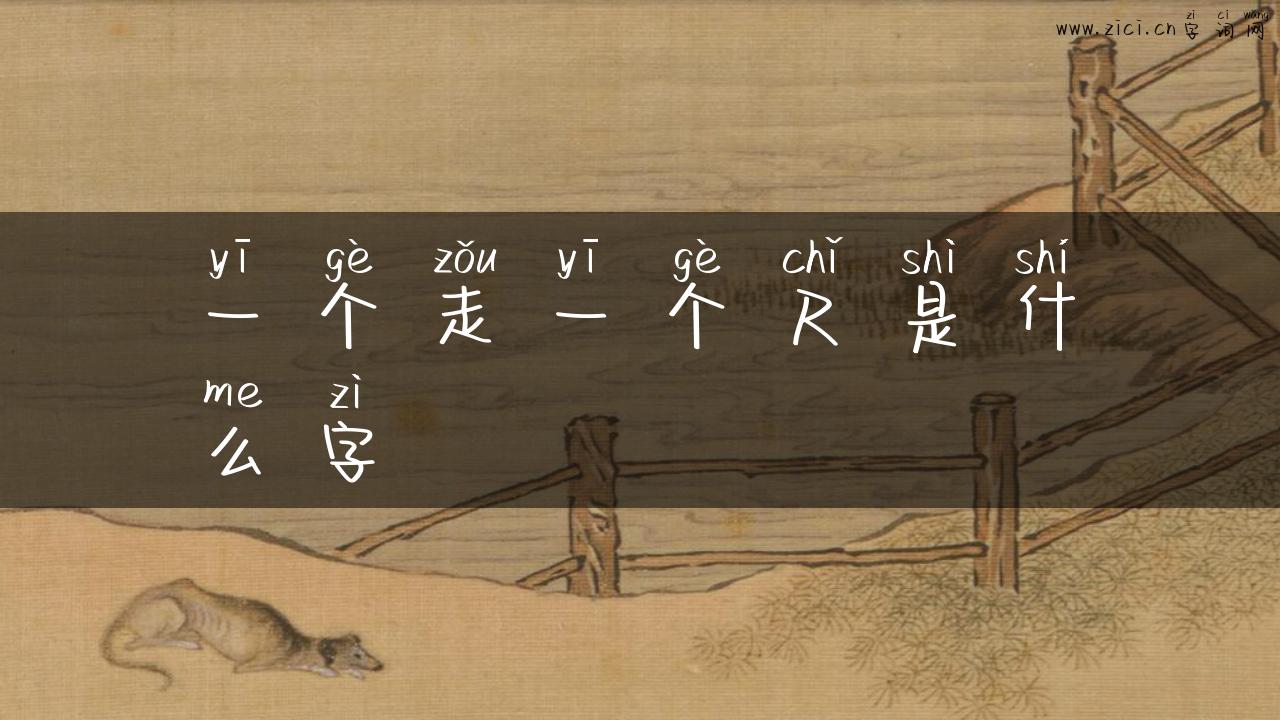 zì cí wǎng
www.zici.cn 字词网
yī gè zǒu yī gè chǐ shì shí
一个走一个尺是什
me zì
么字